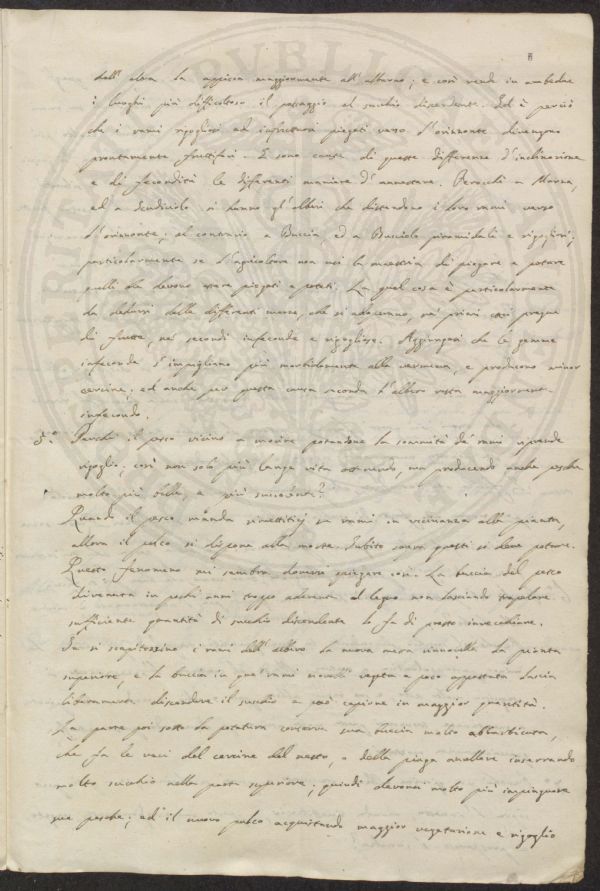 dell' altra la appicca maggiormente all' alburno; e così rende in ambedue
i luoghi più difficoltoso il passaggio al succhio discendente. Ed è perciò
che i rami rigogliosi ed infruttuosi piegati verso l'orizzonte divengono
prontamente fruttiferi. E sono causa di queste differenze d'inclinazione
e di fecondità le differenti maniere d'annestare. Perocchè a Marza,
ed a Scudiciolo si hanno gl'alberi che distendono i loro rami verso
l'orizzonte; al contrario a Buccia, ed a Bucciolo piramidali e rigogliosi;
particolarmente se l'agricoltore non usi la maestria di piegare e potare
quelli che devono essere piegati e potati. La qual cosa è particolarmente
da dedursi dalle differenti messe, che si osservano, ne' primi assai pregne
di frutta, ne' secondi infeconde e rigogliose. Aggiungasi che le gemme
infeconde s'impigliano più morbidamente alla vermena, e producono minor
cercine; ed anche per questa causa seconda l'albero resta maggiormente
infecondo.
5.° Perchè il pesco vicino a morire potandone la sommità de' rami riprende
rigoglio; così non solo più lunga vita ottenendo, ma producendo anche pesche
molto più belle, e più succolenti?
Quando il pesco manda rimettiticj su rami in vicinanza alla pianta,
allora il pesco si dispone alla morte. Subito sovra questi si deve potare.
Questo fenomeno mi sembra doversi spiegare così. La buccia del pesco
divenuta in pochi anni troppo aderente al legno non lasciando trapelare
sufficiente quantità di succhio discendente lo fa di presto invecchiare.
Ora si scapitozzino i rami dell' albero la nuova messa rinnovella la pianta
superiore, e la buccia in que' rami novelli vegeta e poco appostata lascia
liberamente discendere il succhio e può capirne in maggior quantità.
La parte poi sotto la potatura conserva sua buccia molto abbarbicata,
che fa le veci del cercine del nesto, o della piaga anullare inserrando
molto succhio nella parte superiore; quindi devonsi molto più impinguare
sue pesche; ed il nuovo pesco acquistando maggior vegetazione e rigoglio